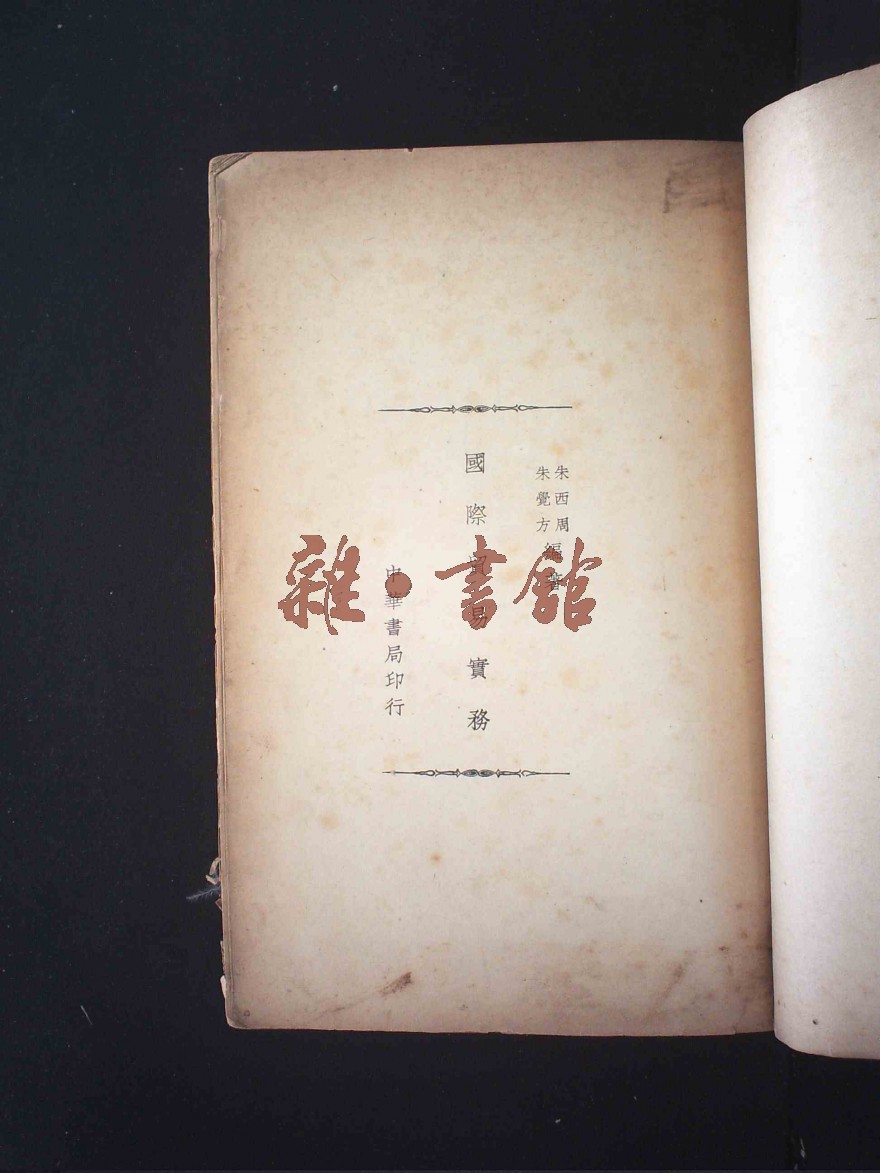 朱西周
朱覺方
編著
國際貿易實務
中華書局印行
雜·書館